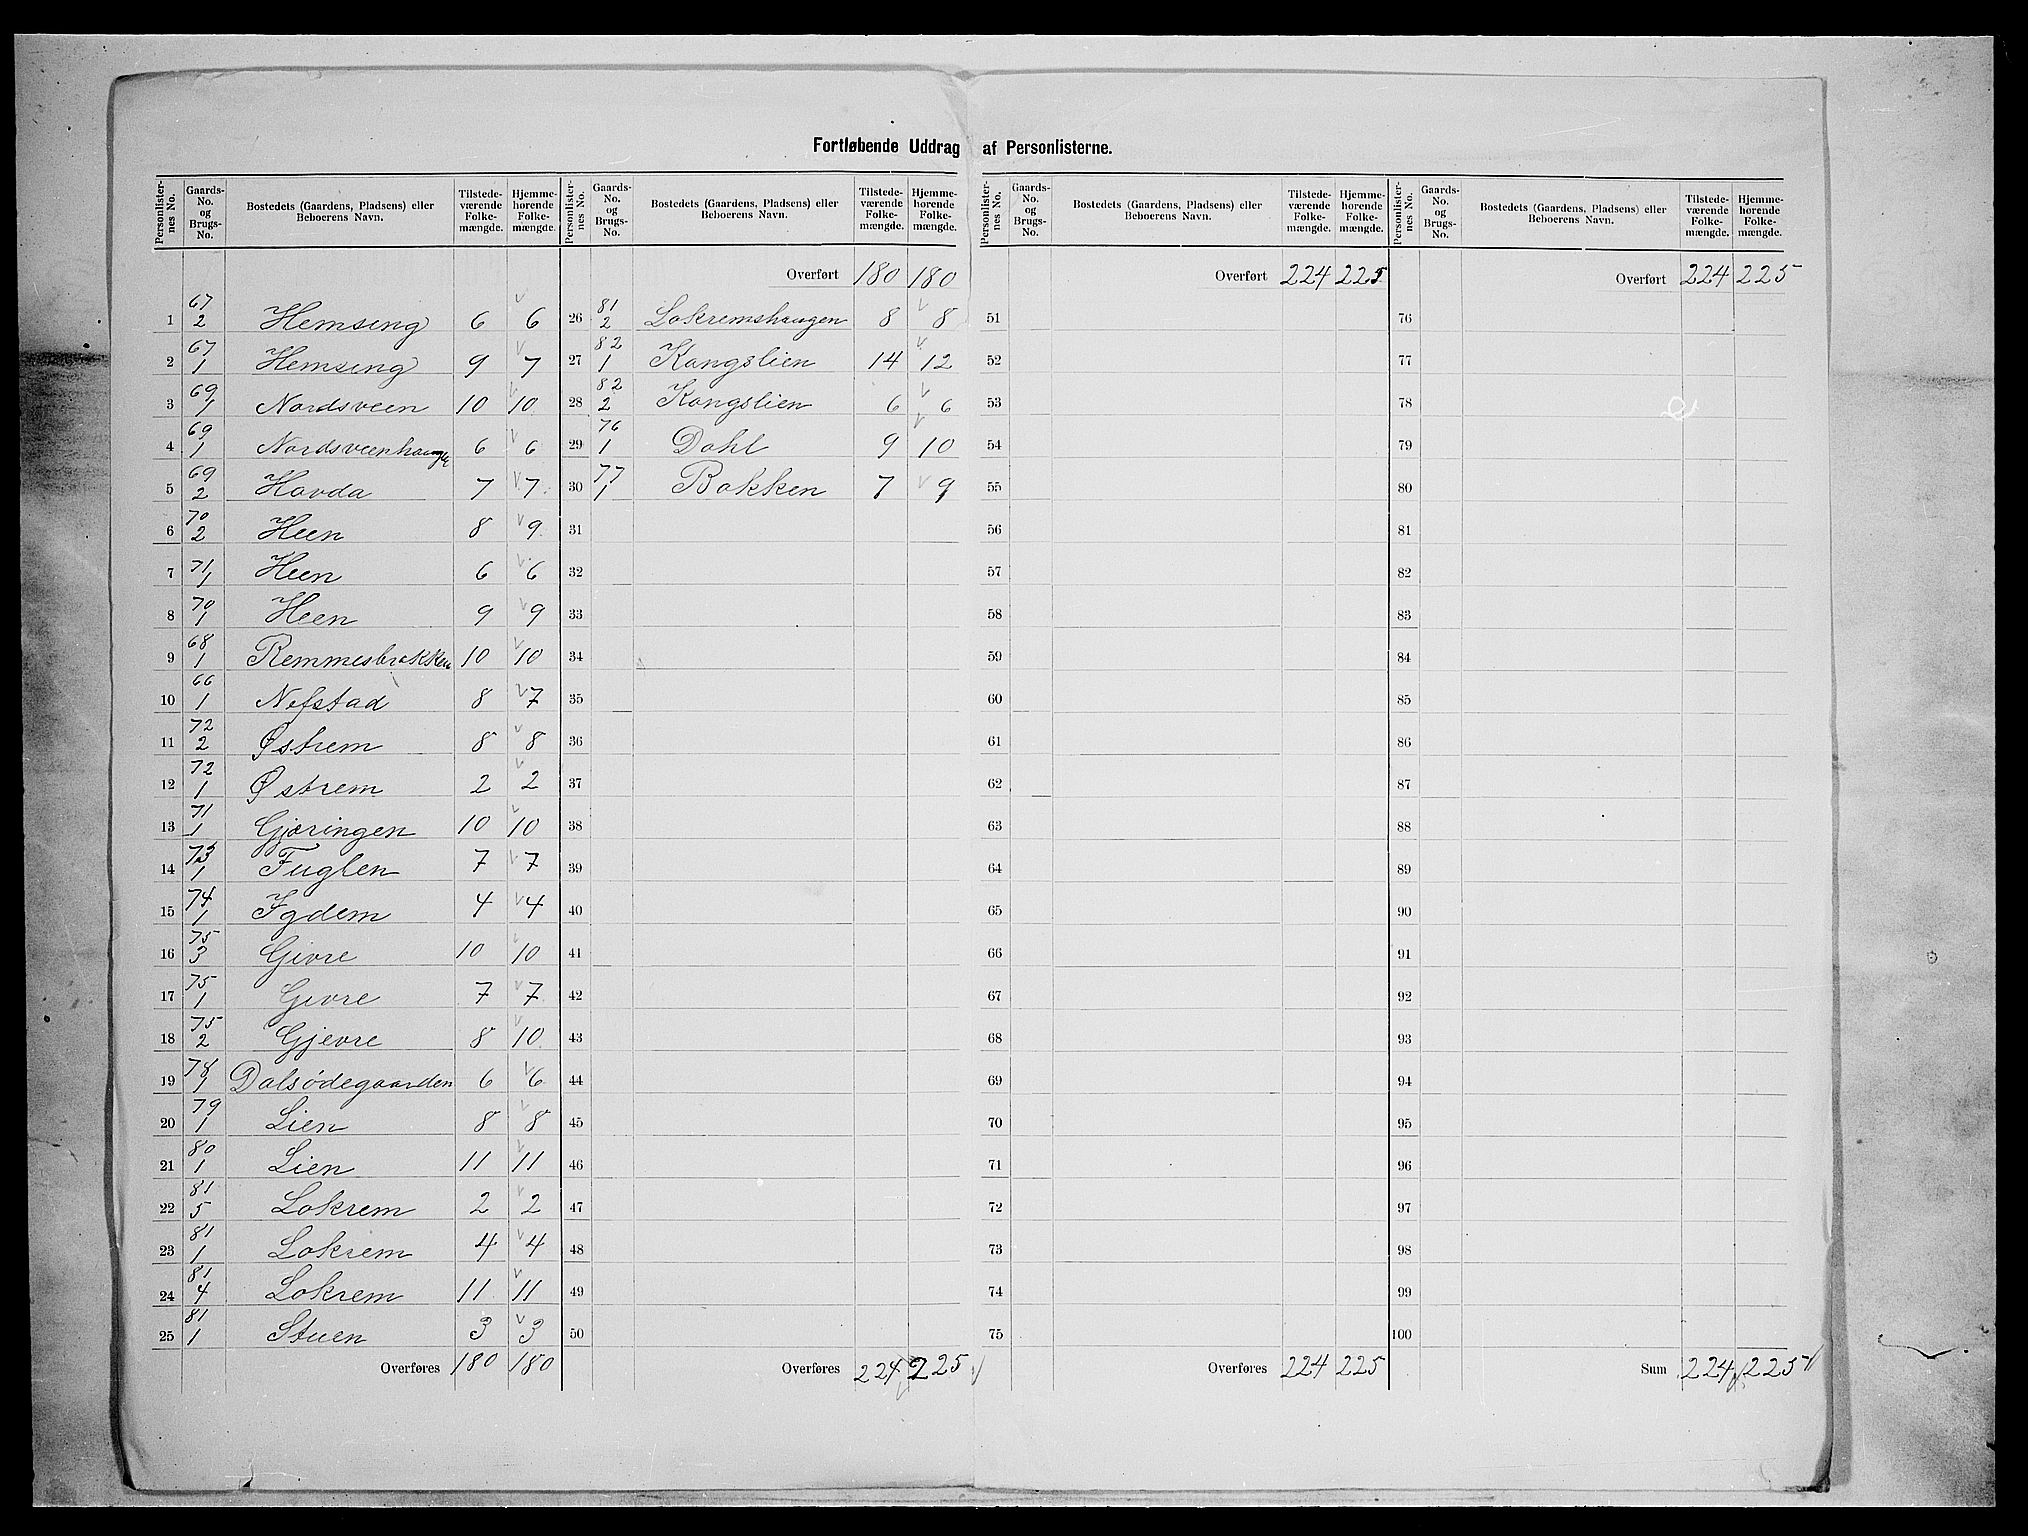 Fortløbende Uddrag af Personlisterne.
Personlisternes No. | Gaards-No. og Brugs-No. | Bostedets (Gaardens, Pladsens) eller Beboerens Navn. | Tilstedeværende Folkemængde. | Hjemmehørende Folkemængde.
1 67/2 Hemsing 6 6
2 67/1 Hemsing 9 7
3 69/1 Nordsveen 10 10
4 69/1 Nordsveenhaugen 6 6
5 69/2 Hovda 7 7
6 70/2 Heen 8 9
7 71/1 Heen 6 6
8 70/1 Heen 9 9
9 68/1 Remmesbrokken 10 10
10 66/1 Nefstad 8 7
11 72/2 Østrem 8 8
12 72/1 Østrem 2 2
13 71/1 Gjøringen 10 10
14 73/1 Fuglen 7 7
15 74/1 Igdem 4 4
16 75/3 Givre 10 10
17 75/1 Givre 7 7
18 75/2 Gjevre 8 10
19 78/1 Dalsødegaarden 6 6
20 79/1 Lien 8 8
21 80/1 Lien 11 11
22 81/5 Lokrem 2 2
23 81/1 Lokrem 4 4
24 81/4 Lokrem 11 11
25 81/1 Stuen 3 3
Overføres 180 180
Personlisternes No. | Gaards-No. og Brugs-No. | Bostedets (Gaardens, Pladsens) eller Beboerens Navn. | Tilstedeværende Folkemængde. | Hjemmehørende Folkemængde.
Overført 180 180
26 81/2 Lokremshaugen 8 8
27 82/1 Kongslien 14 12
28 82/2 Kongslien 6 6
29 76/1 Dahl 9 10
30 77/1 Bakken 7 9
31
32
33
34
35
36
37
38
39
40
41
42
43
44
45
46
47
48
49
50
Overføres 224 225
Personlisternes No. | Gaards-No. og Brugs-No. | Bostedets (Gaardens, Pladsens) eller Beboerens Navn. | Tilstedeværende Folkemængde. | Hjemmehørende Folkemængde.
Overført 224 225
51
52
53
54
55
56
57
58
59
60
61
62
63
64
65
66
67
68
69
70
71
72
73
74
75
Overføres 224 225
Personlisternes No. | Gaards-No. og Brugs-No. | Bostedets (Gaardens, Pladsens) eller Beboerens Navn. | Tilstedeværende Folkemængde. | Hjemmehørende Folkemængde.
Overført 224 225
76
77
78
79
80
81
82
83
84
85
86
87
88
89
90
91
92
93
94
95
96
97
98
99
100
Sum 224 225